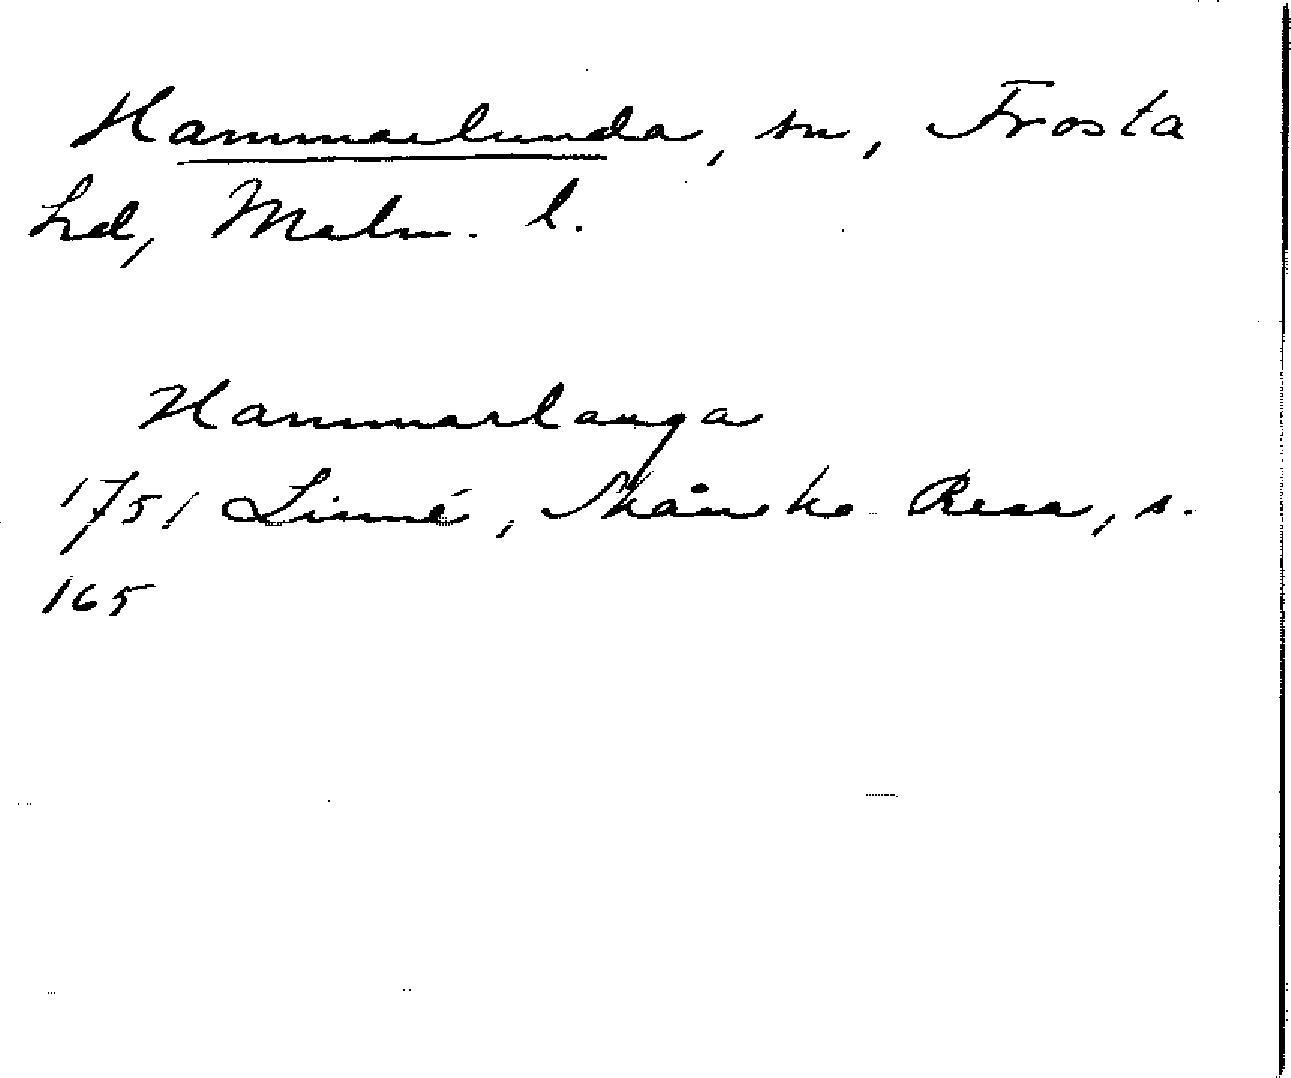 Hammarlunda, sn, Frosta
hd, Malm. l.
Hammarlauga
1751 Linné, Skånska Resa, s.
165